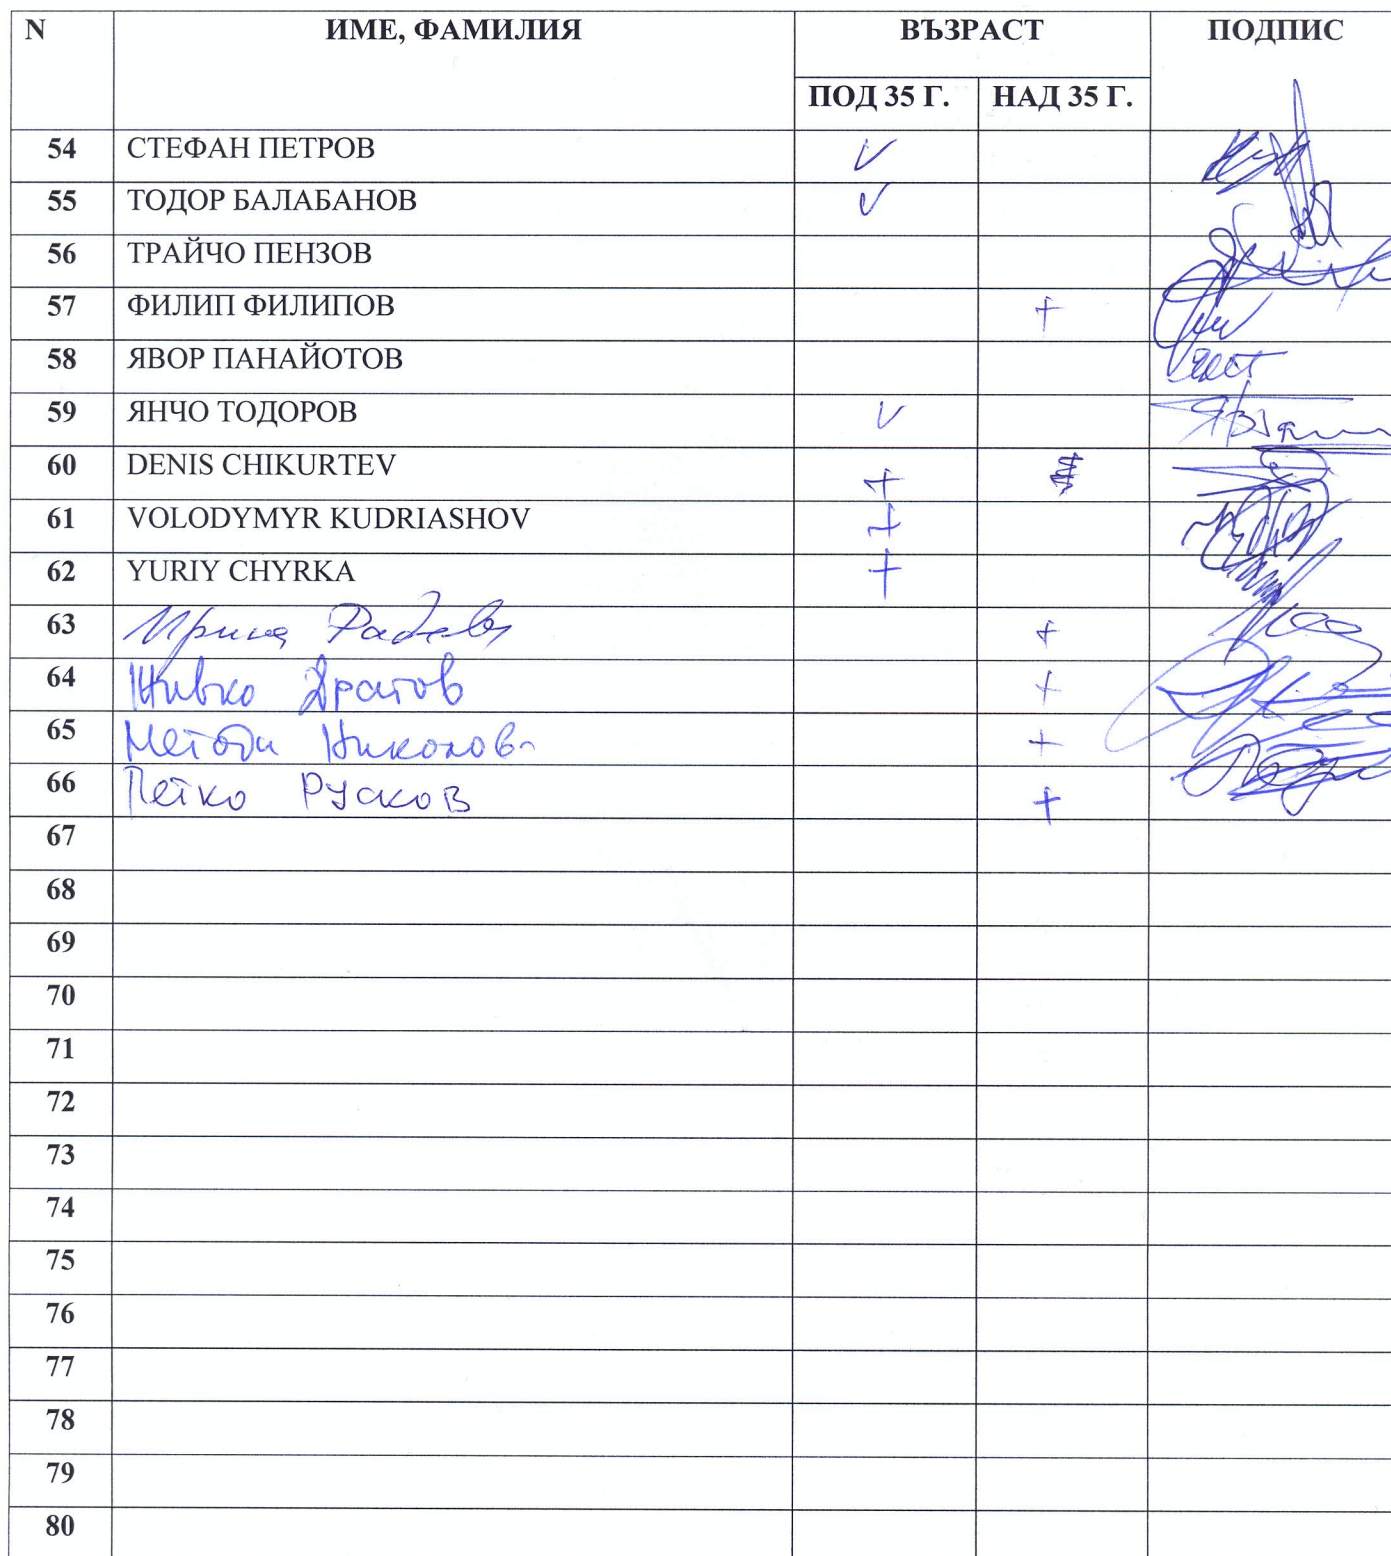 N ИМЕ, ФАМИЛИЯ ВЪЗРАСТ ПОДПИС
ПОД 35 Г. НАД 35 Г.
54 СТЕФАН ПЕТРОВ V
55 ТОДОР БАЛАБАНОВ V
56 ТРАЙЧО ПЕНЗОВ
57 ФИЛИП ФИЛИПОВ +
58 ЯВОР ПАНАЙОТОВ
59 ЯНЧО ТОДОРОВ V
60 DENIS CHIKURTEV +
61 VOLODYMYR KUDRIASHOV +
62 YURIY CHYRKA +
63 Ирина Радева +
64 Живко +
65 Методи Николов +
66 Петко Русков +
67
68
69
70
71
72
73
74
75
76
77
78
79
80